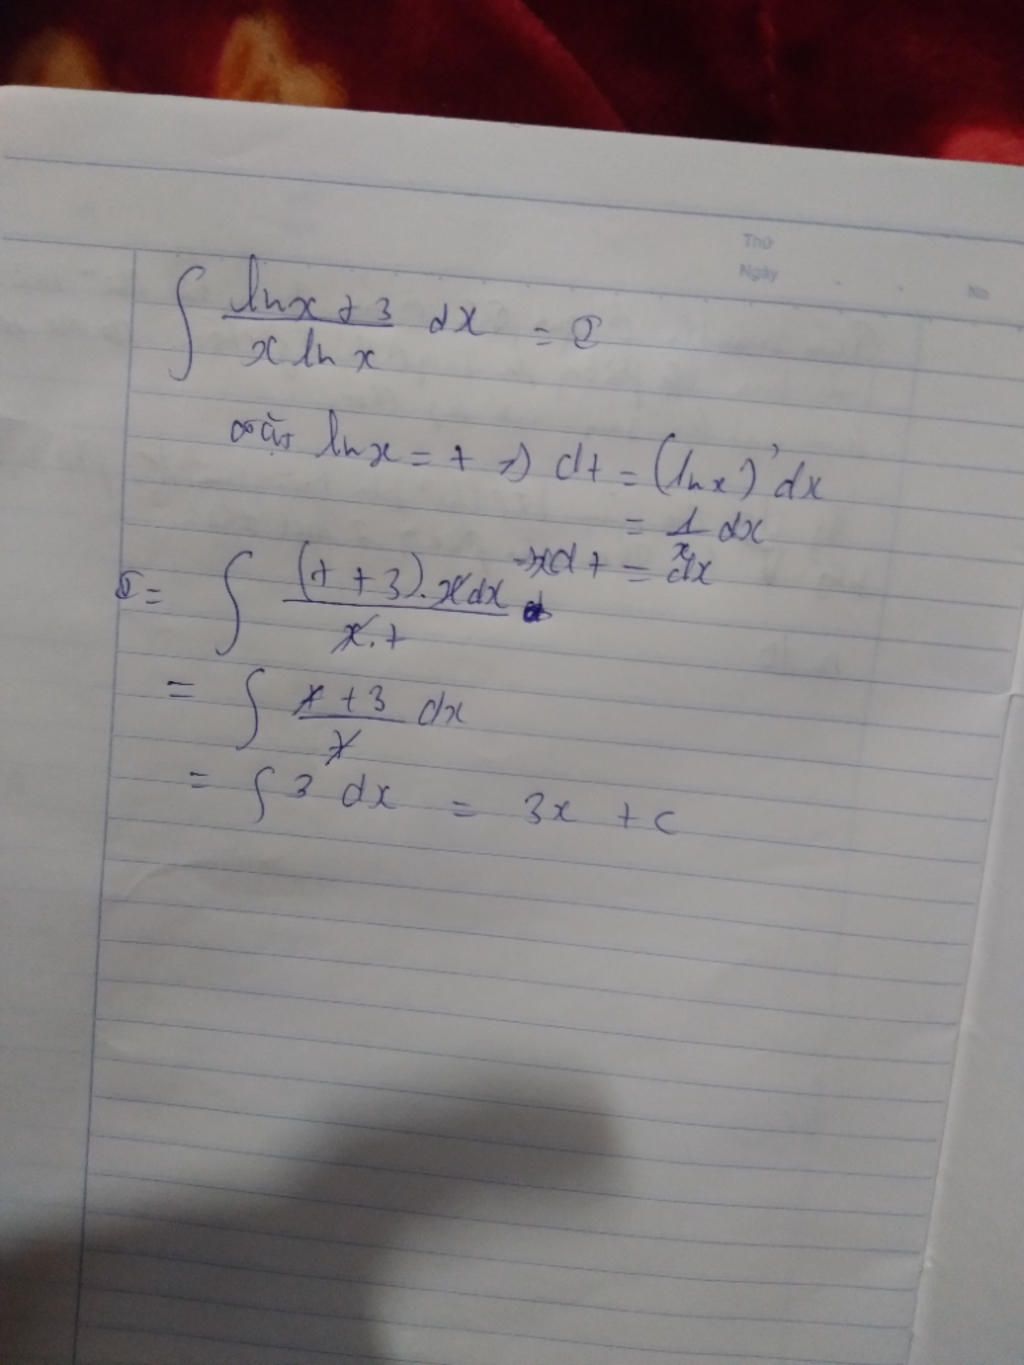 Thứ
Ngày
No
∫ (lnx + 3)/(x ln x) dx = I
Đặt lnx = t => dt = (lnx)' dx
= 1/x dx
→ xdt = dx
I = ∫ ((t + 3).xdx)/(x.t)
= ∫ (t + 3)/t dx
= ∫ 3 dx = 3x + c